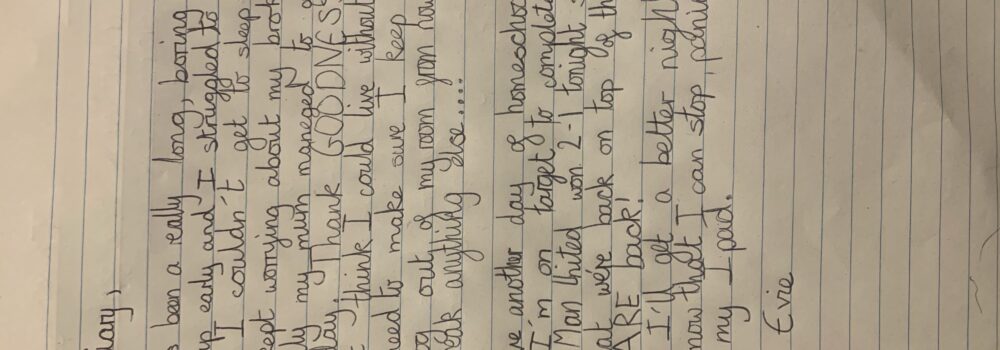 iary,
been a really long, boring
p early and I struggled to
I couldn't get to sleep
ept worrying about my brok
ly my mum maneged to
day. Thank GOODNESS
think I could live without
need to make sure I keep
og out of my room you
eak anything else....
ve another day of homeschoo
I'm on target to complete
Man Uited won 2-1 tonight s
at we're back on top of th
ARE back!
I'll get a better night
now that I can stop panic
my Ipad.
Evie